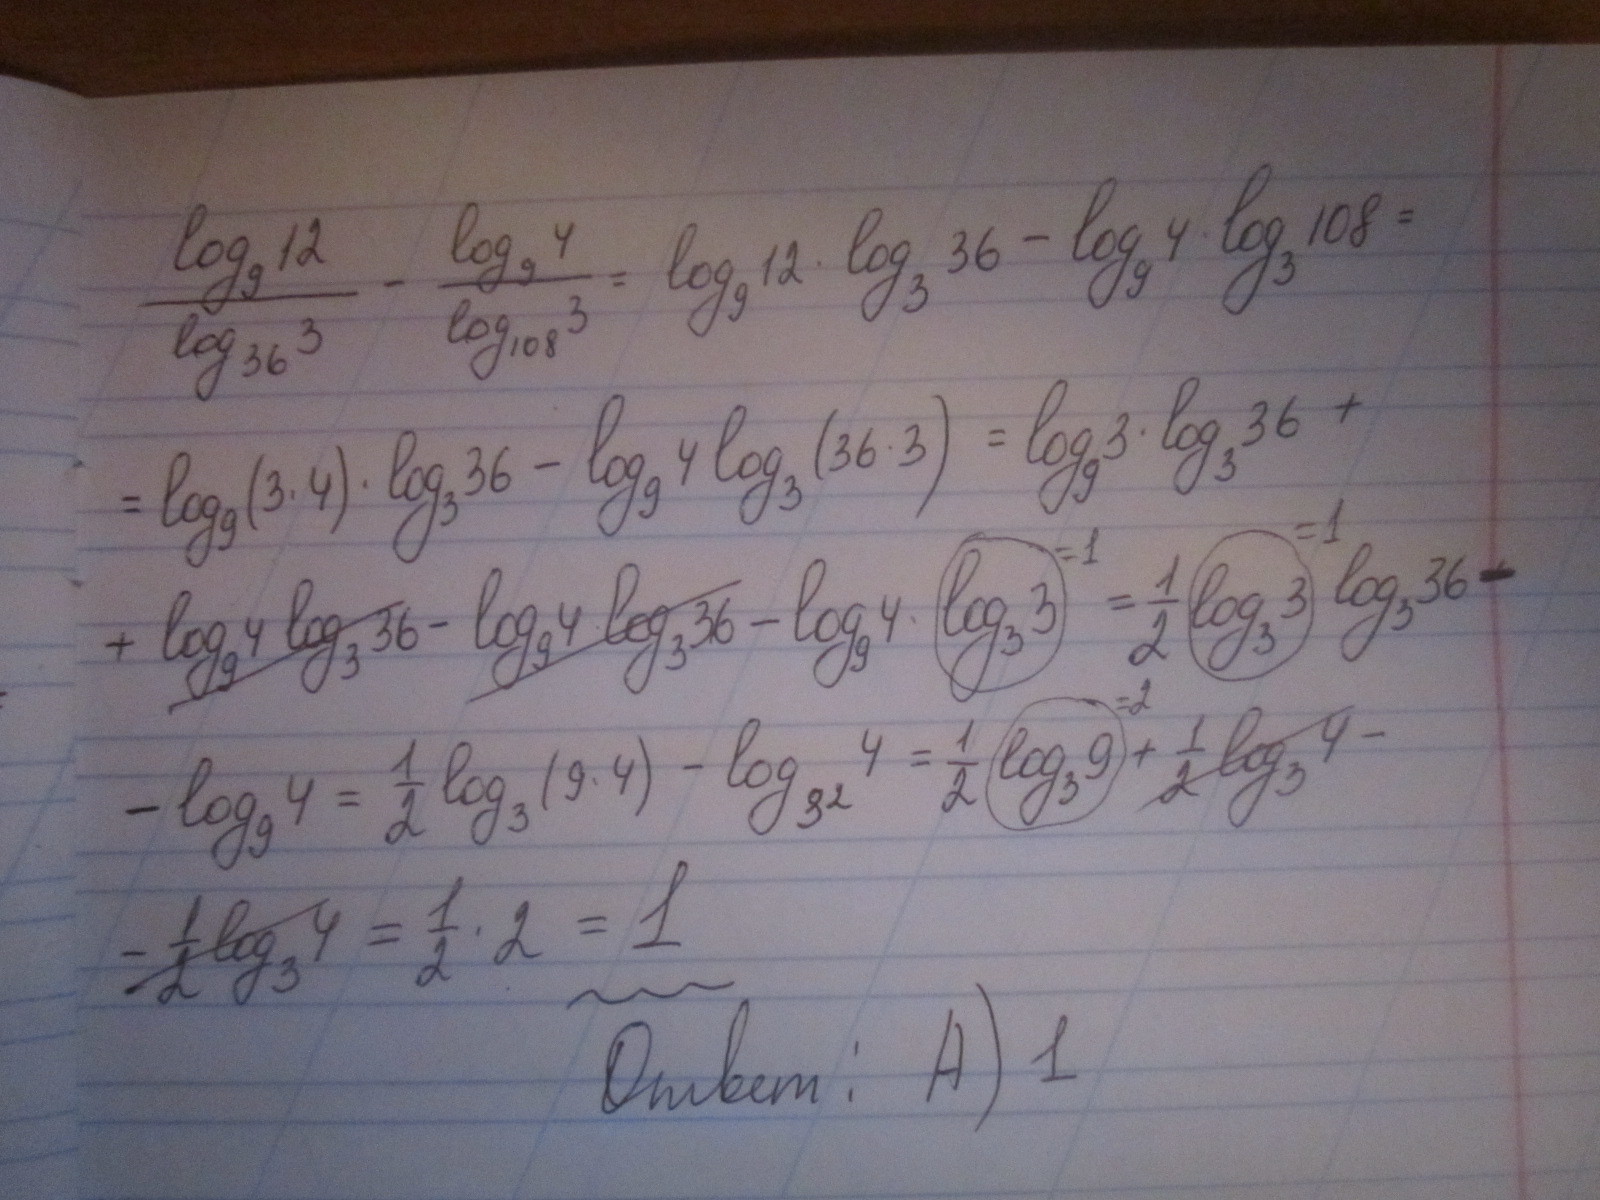 log₉12/log₃₆3 - log₉4/log₁₀₈3 = log₉12 · log₃36 - log₉4 · log₃108 =
= log₉(3·4) · log₃36 - log₉4 log₃(36·3) = log₉3 · log₃36 +
+ log₉4 log₃36 - log₉4 log₃36 - log₉4 · log₃3 =1 = 1/2 log₃3 =1 log₃36 -
- log₉4 = 1/2 log₃(9·4) - log₃²4 = 1/2 log₃9 =2 + 1/2 log₃4 -
- 1/2 log₃4 = 1/2 · 2 = 1
Ответ: А) 1